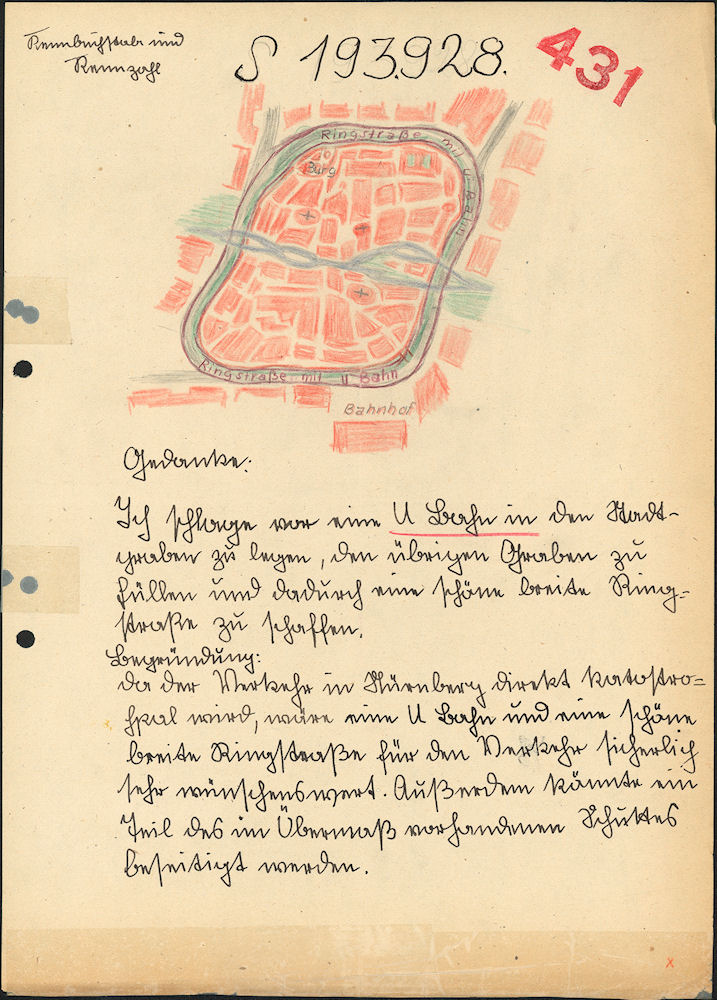 Kennbuchstabe und
Kennzahl
S 193.928.
431
Ringstraße mit U Bahn
Burg
Ringstraße mit U Bahn
Bahnhof
Gedanke:
Ich schlage vor eine U Bahn in den Stadt-
graben zu legen, den übrigen Graben zu
füllen und dadurch eine schöne breite Ring-
straße zu schaffen.
Begründung:
Da der Verkehr in Nürnberg direkt katastro=
phal wird, wäre eine U Bahn und eine schöne
breite Ringstraße für den Verkehr sicherlich
sehr wünschenswert. Außerdem könnte ein
Teil des im Übermaß vorhandenen Schuttes
beseitigt werden.
x